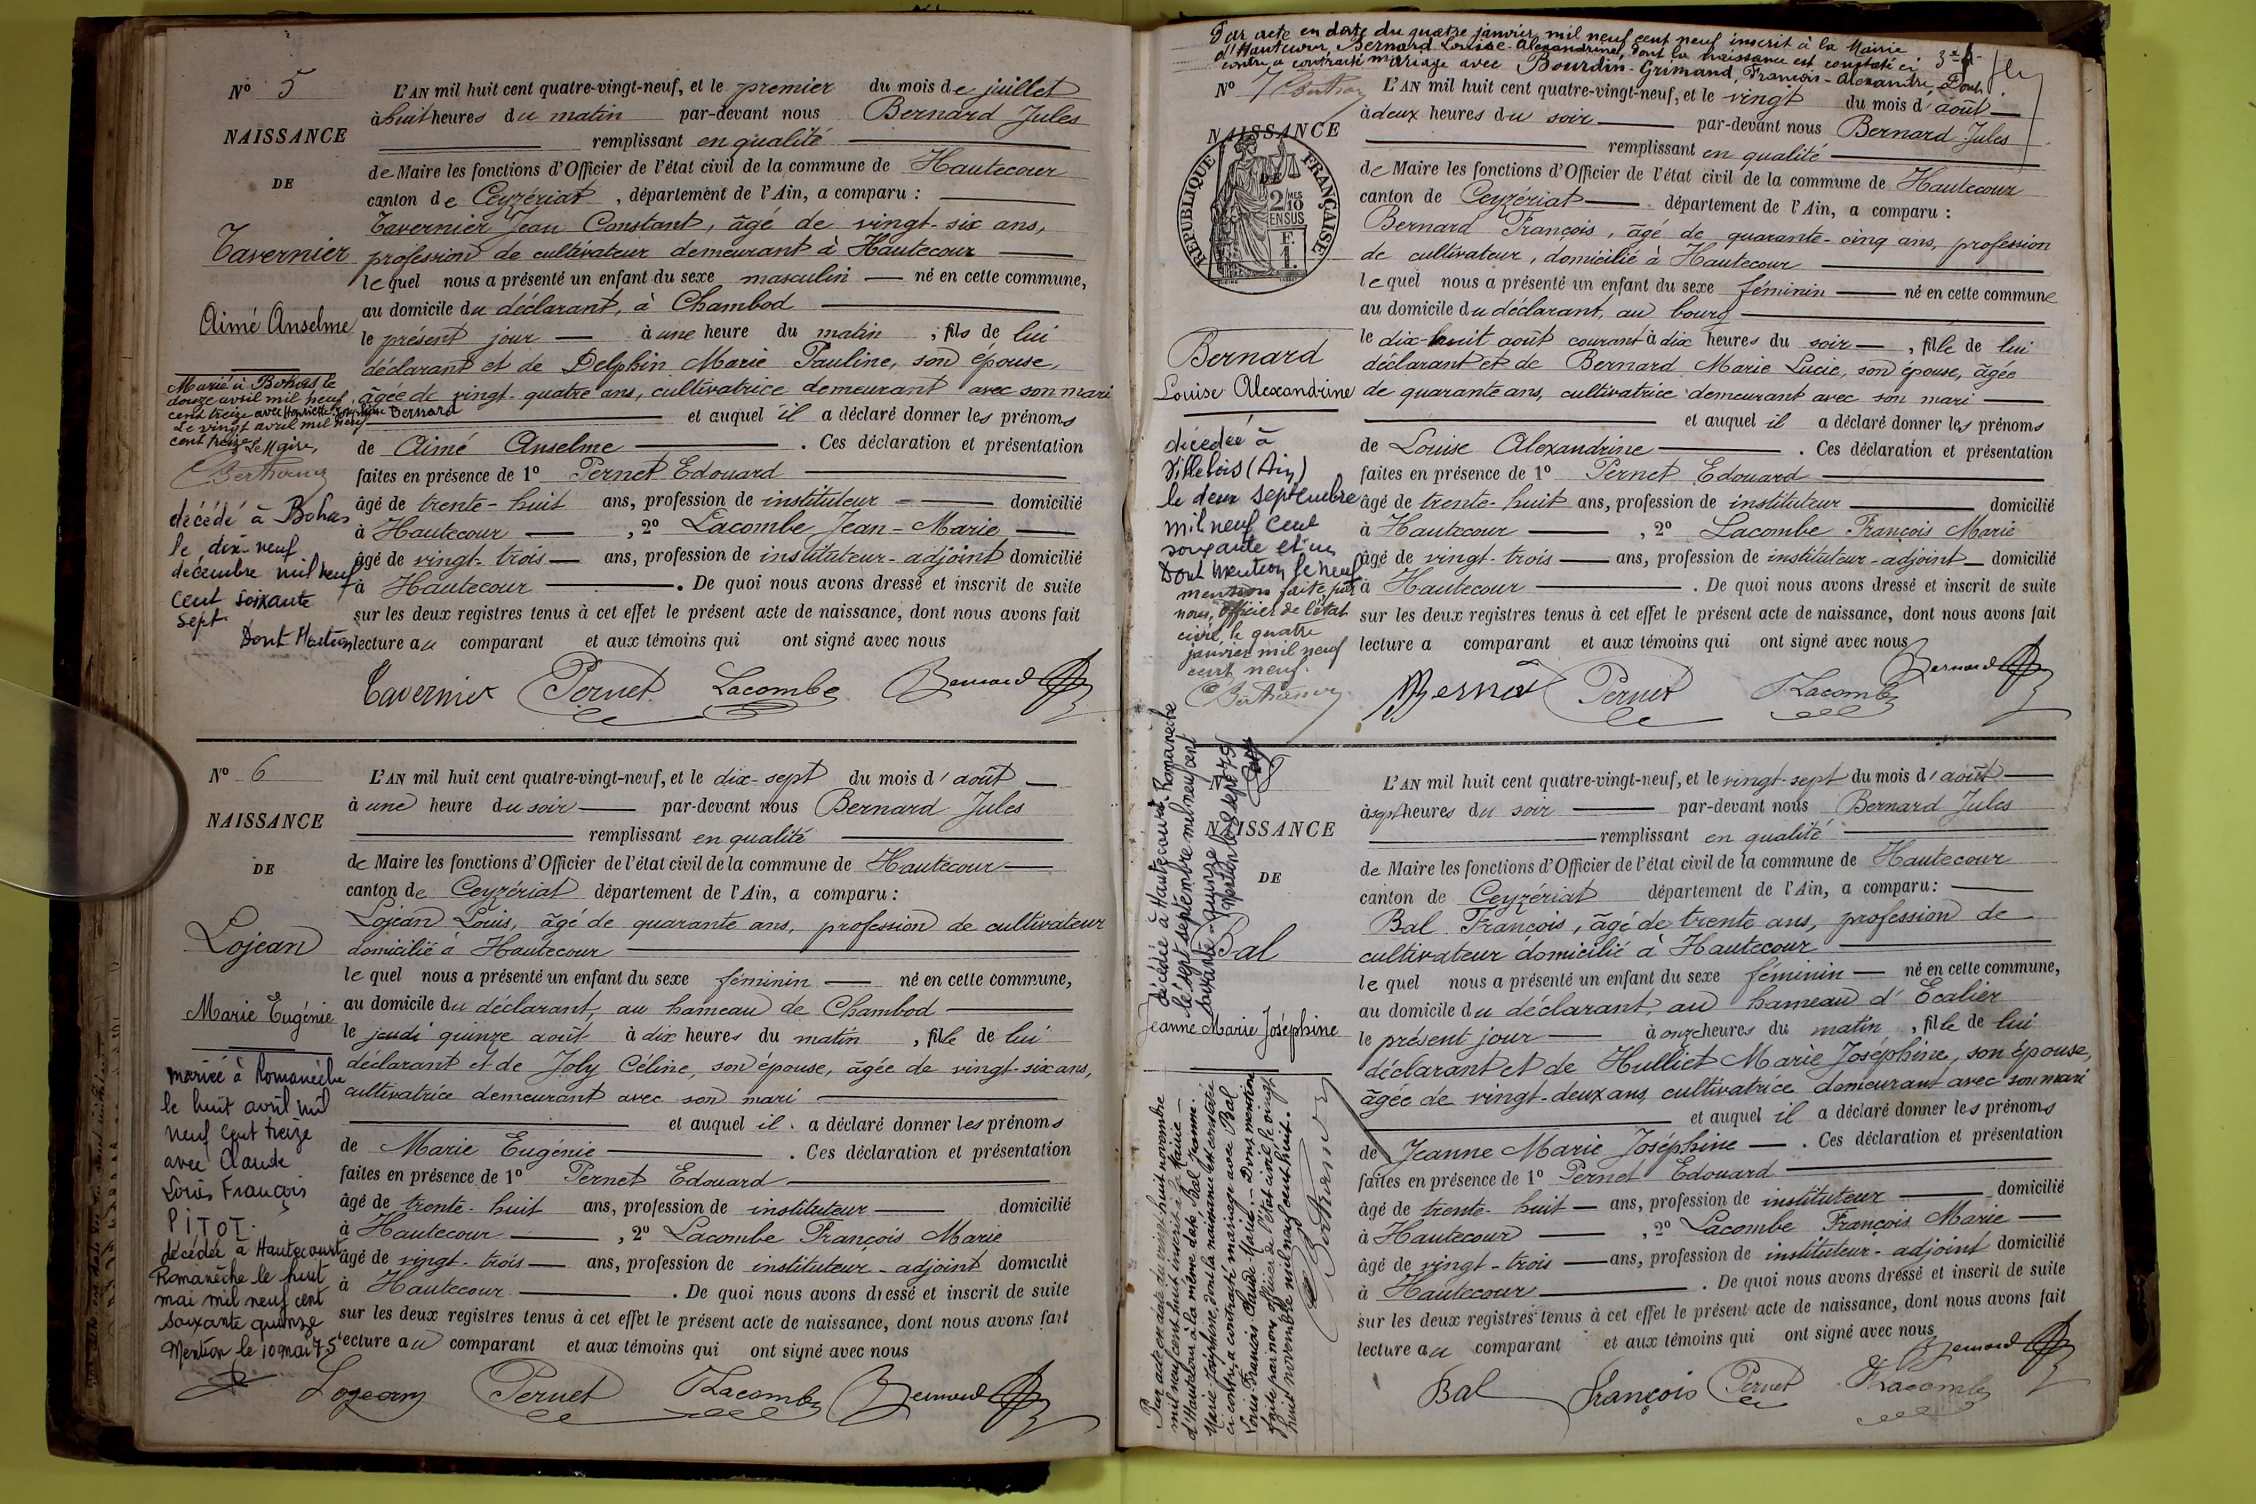 Nº 5
NAISSANCE
DE
Tavernier
Aimé Anselme
Marié à Bohas le
douze avril mil neuf
cent treize avec Henriette Joséphine Bernard
Le vingt avril mil neuf
cent treize, Le Maire,
décédé à Bohas
le dix-neuf
décembre mil neuf
cent soixante
sept
Dont Mention
L'AN mil huit cent quatre-vingt-neuf, et le premier du mois de juillet
à huit heures du matin par-devant nous Bernard Jules
remplissant en qualité
de Maire les fonctions d'Officier de l'état civil de la commune de Hautecour
canton de Ceyzériat, département de l'Ain, a comparu :
Tavernier Jean Constant, âgé de vingt-six ans,
profession de cultivateur demeurant à Hautecour
lequel nous a présenté un enfant du sexe masculin né en cette commune,
au domicile du déclarant, à Chambod
le présent jour à une heure du matin, fils de lui
déclarant et de Delphin Marie Pauline, son épouse,
âgée de vingt-quatre ans, cultivatrice demeurant avec son mari
et auquel il a déclaré donner les prénoms
de Aimé Anselme. Ces déclaration et présentation
faites en présence de 1º Pernet Edouard
âgé de trente-huit ans, profession de instituteur domicilié
à Hautecour, 2º Lacombe Jean-Marie
âgé de vingt-trois ans, profession de instituteur-adjoint domicilié
à Hautecour. De quoi nous avons dressé et inscrit de suite
sur les deux registres tenus à cet effet le présent acte de naissance, dont nous avons fait
lecture au comparant et aux témoins qui ont signé avec nous
Tavernier Pernet Lacombe Bernard
Nº 6
NAISSANCE
DE
Lojean
Marie Eugénie
mariée à Romanèche
le huit avril mil
neuf cent treize
avec Claude
Louis François
PITOT.
décédée à Hautecourt
Romanèche le huit
mai mil neuf cent
soixante quinze
Mention le 10 mai 75
L'AN mil huit cent quatre-vingt-neuf, et le dix-sept du mois d'août
à une heure du soir par-devant nous Bernard Jules
remplissant en qualité
de Maire les fonctions d'Officier de l'état civil de la commune de Hautecour
canton de Ceyzériat département de l'Ain, a comparu :
Lojean Louis, âgé de quarante ans, profession de cultivateur
domicilié à Hautecour
lequel nous a présenté un enfant du sexe féminin né en cette commune,
au domicile du déclarant, au hameau de Chambod
le jeudi quinze août à dix heures du matin, fille de lui
déclarant et de Joly Céline, son épouse, âgée de vingt-six ans,
cultivatrice demeurant avec son mari
et auquel il a déclaré donner les prénoms
de Marie Eugénie. Ces déclaration et présentation
faites en présence de 1º Pernet Edouard
âgé de trente-huit ans, profession de instituteur domicilié
à Hautecour, 2º Lacombe François Marie
âgé de vingt-trois ans, profession de instituteur-adjoint domicilié
à Hautecour. De quoi nous avons dressé et inscrit de suite
sur les deux registres tenus à cet effet le présent acte de naissance, dont nous avons fait
lecture au comparant et aux témoins qui ont signé avec nous
Lojean Pernet F Lacombe Bernard
Par acte en date du quatre janvier mil neuf cent neuf inscrit à la Mairie
d'Hautecour, Bernard Louise-Alexandrine, dont la naissance est constatée ci
contre a contracté mariage avec Bourdin-Grimaud, François-Alexandre, Dont
Nº 7
NAISSANCE
REPUBLIQUE FRANÇAISE
2/10 MES
EN SUS
F.
1.
Bernard
Louise Alexandrine
décédée à
Villebois (Ain)
le deux septembre
mil neuf cent
soixante et un
Dont mention le neuf
mention faite par
nous, officier de l'état
civil, le quatre
janvier mil neuf
cent neuf.
L'AN mil huit cent quatre-vingt-neuf, et le vingt du mois d'août
à deux heures du soir par-devant nous Bernard Jules
remplissant en qualité
de Maire les fonctions d'Officier de l'état civil de la commune de Hautecour
canton de Ceyzériat département de l'Ain, a comparu :
Bernard François, âgé de quarante-cinq ans, profession
de cultivateur, domicilié à Hautecour
lequel nous a présenté un enfant du sexe féminin né en cette commune
au domicile du déclarant, au bourg
le dix-huit août courant à dix heures du soir, fille de lui
déclarant et de Bernard Marie Lucie, son épouse, âgée
de quarante ans, cultivatrice demeurant avec son mari
et auquel il a déclaré donner les prénoms
de Louise Alexandrine. Ces déclaration et présentation
faites en présence de 1º Pernet Edouard
âgé de trente-huit ans, profession de instituteur domicilié
à Hautecour, 2º Lacombe François Marie
âgé de vingt-trois ans, profession de instituteur-adjoint domicilié
à Hautecour. De quoi nous avons dressé et inscrit de suite
sur les deux registres tenus à cet effet le présent acte de naissance, dont nous avons fait
lecture a comparant et aux témoins qui ont signé avec nous
Bernard Pernet F Lacombe Bernard
Nº 8
NAISSANCE
DE
Bal
Jeanne Marie Joséphine
décédée à Hautecourt Romanèche
le sept septembre mil neuf cent
soixante-quinze
Par acte en date du vingt-huit novembre
mil neuf cent huit inscrit à la Mairie
d'Hautecour à la même date, Bal Jeanne-
Marie-Joséphine, dont la naissance est constatée
ci-contre, a contracté mariage avec Bal
Louis-François Claude Marie - Dont mention
faite par nous officier de l'état civil le vingt
huit novembre mil neuf cent huit.
L'AN mil huit cent quatre-vingt-neuf, et le vingt-sept du mois d'août
à sept heures du soir par-devant nous Bernard Jules
remplissant en qualité
de Maire les fonctions d'Officier de l'état civil de la commune de Hautecour
canton de Ceyzériat département de l'Ain, a comparu :
Bal François, âgé de trente ans, profession de
cultivateur domicilié à Hautecour
lequel nous a présenté un enfant du sexe féminin né en cette commune,
au domicile du déclarant, au hameau d'Ecalier
le présent jour à onze heures du matin, fille de lui
déclarant et de Hulliet Marie Joséphine, son épouse,
âgée de vingt-deux ans, cultivatrice demeurant avec son mari
et auquel il a déclaré donner les prénoms
de Jeanne Marie Joséphine. Ces déclaration et présentation
faites en présence de 1º Pernet Edouard
âgé de trente-huit ans, profession de instituteur domicilié
à Hautecour, 2º Lacombe François Marie
âgé de vingt-trois ans, profession de instituteur-adjoint domicilié
à Hautecour. De quoi nous avons dressé et inscrit de suite
sur les deux registres tenus à cet effet le présent acte de naissance, dont nous avons fait
lecture au comparant et aux témoins qui ont signé avec nous
Bal François Pernet F Lacombe Bernard